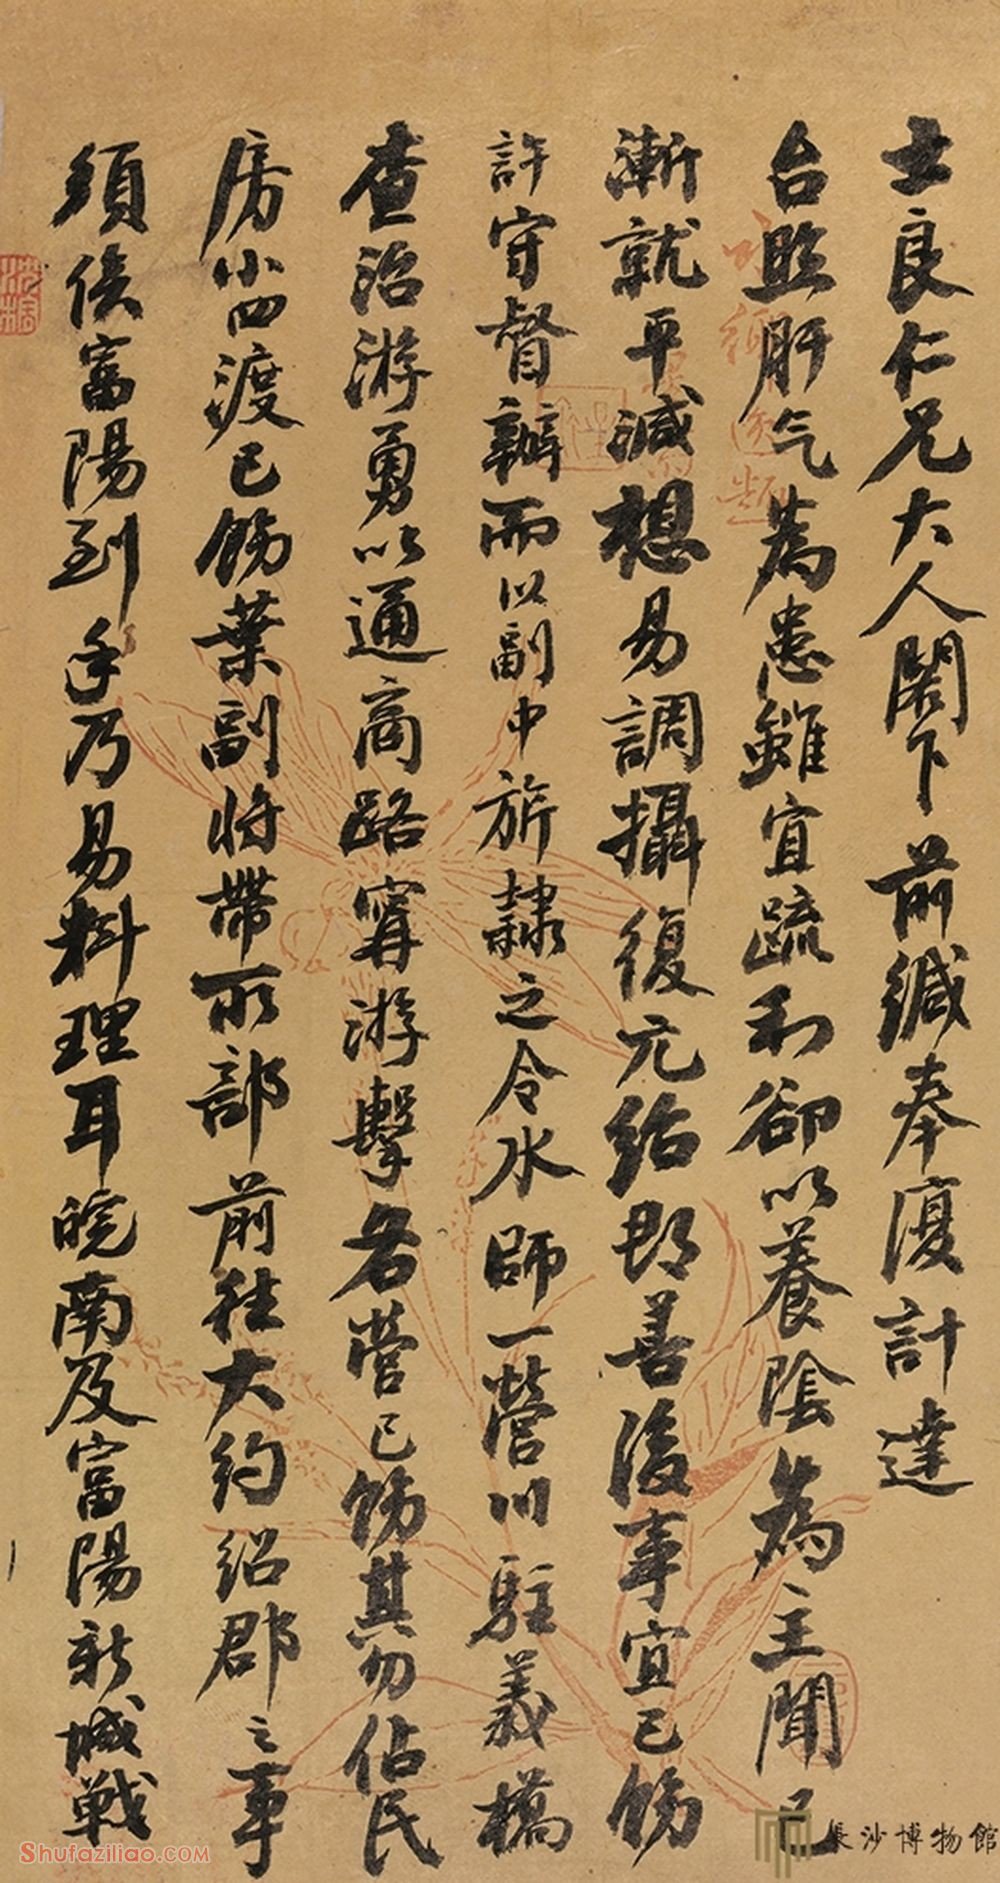 士良仁兄大人閣下前緘奉復計達
台照肝气為患雖宜疏利卻以養陰為主聞已
漸就平減想易調攝復元紹郡善後事宜已飭
許守督辦而以副中旂隷之令水師一營川駐義橋
查治游勇以通商路寗游擊各營已飭其勿佔民
房小四渡已飭葉副将帶所部前往大約紹郡之事
須俟富陽到手乃易料理耳皖南及富陽新城戰
長沙博物館
Shufaziliao.com